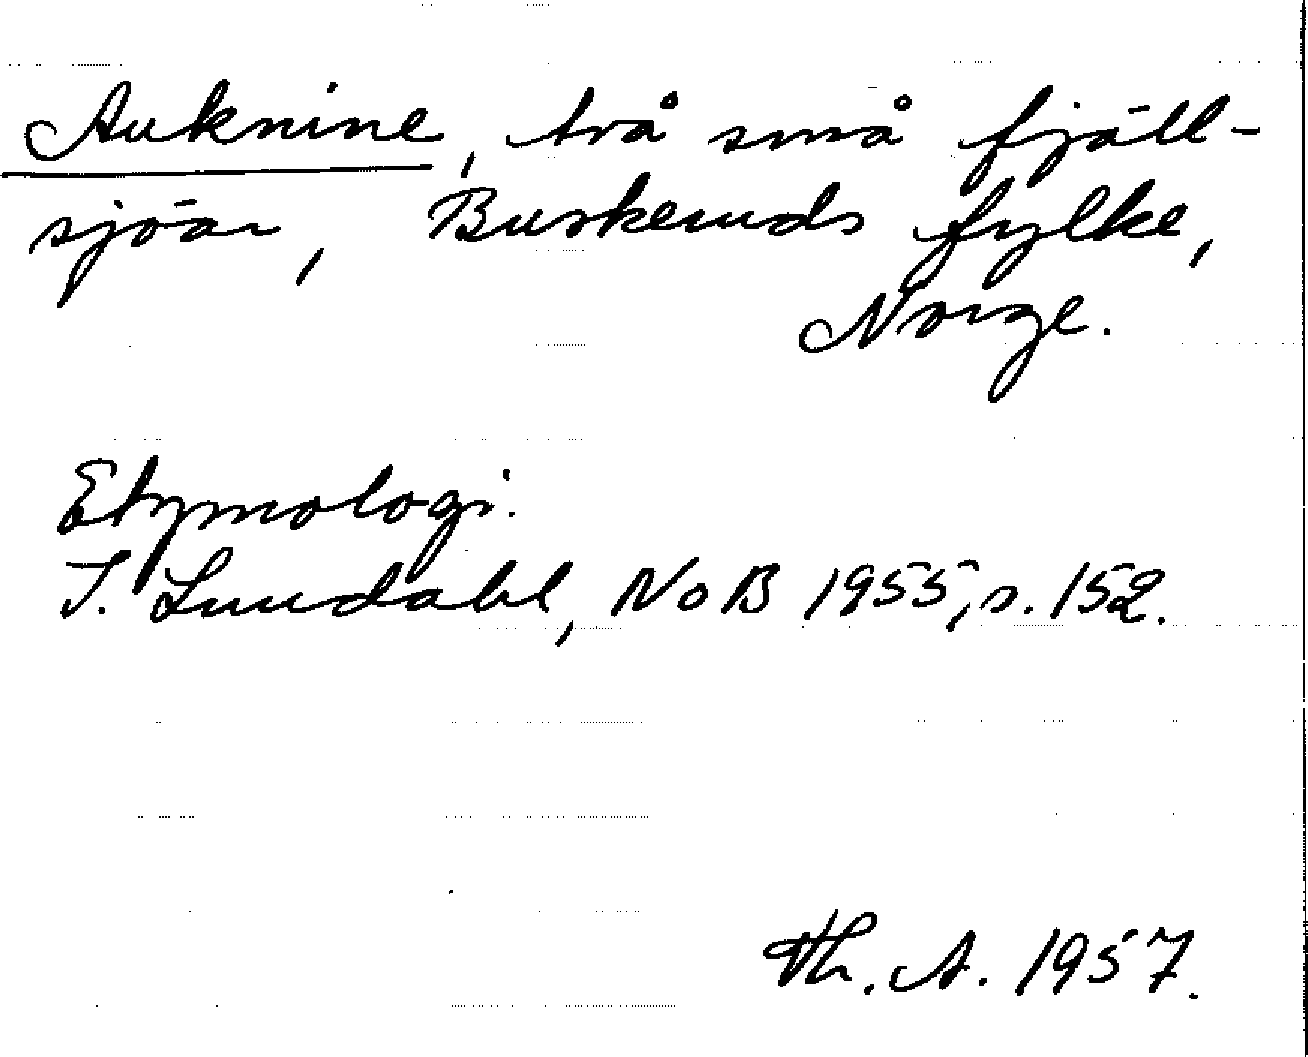 Auknine, två små fjäll-
sjöar, Buskeruds fylke,
Norge.
Etymologi.
I. Lundahl, NoB 1955, s. 152.
Th. A. 1957.